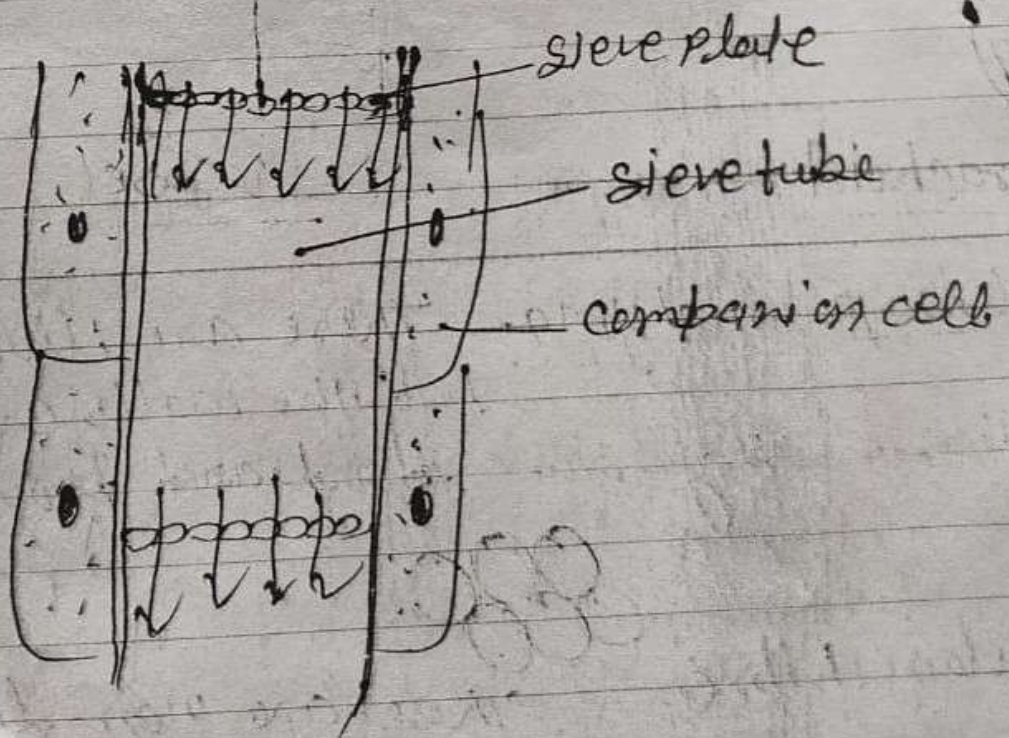 sieve plate
sieve tube
companion cell